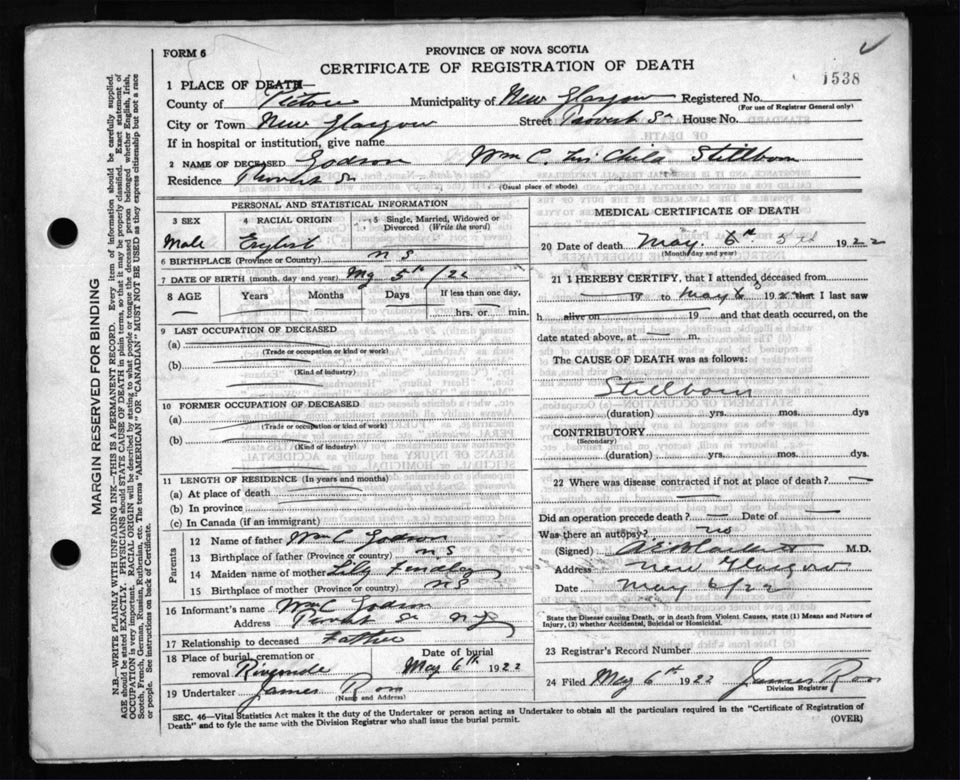 FORM 6
PROVINCE OF NOVA SCOTIA
CERTIFICATE OF REGISTRATION OF DEATH
1538
1 PLACE OF DEATH
County of Pictou Municipality of New Glasgow Registered No.
(For use of Registrar General only)
City or Town New Glasgow Street House No.
If in hospital or institution, give name
2 NAME OF DECEASED Godson Wm C. Child Stillborn
Residence
(Usual place of abode)
PERSONAL AND STATISTICAL INFORMATION
3 SEX
Male
4 RACIAL ORIGIN
English
5 Single, Married, Widowed or Divorced (Write the word)
6 BIRTHPLACE (Province or Country) N S
7 DATE OF BIRTH (month, day and year) 5th/22
8 AGE Years Months Days If less than one day,
hrs. or min.
9 LAST OCCUPATION OF DECEASED
(a)
(Trade or occupation or kind or work)
(b)
(Kind of industry)
10 FORMER OCCUPATION OF DECEASED
(a)
(Trade or occupation or kind of work)
(b)
(Kind of industry)
11 LENGTH OF RESIDENCE (In years and months)
(a) At place of death
(b) In province
(c) In Canada (if an immigrant)
Parents
12 Name of father Wm C Godson
13 Birthplace of father (Province or country) N S
14 Maiden name of mother Lily Findlay
15 Birthplace of mother (Province or country) N S
16 Informant's name Wm C Godson
Address N S
17 Relationship to deceased Father
18 Place of burial, cremation or removal Riverside
Date of burial
May 6th 1922
19 Undertaker James Ross
(Name and Address)
MEDICAL CERTIFICATE OF DEATH
20 Date of death May. 6th 1922
(Month day and year)
21 I HEREBY CERTIFY, that I attended deceased from
19 to May 6 192 that I last saw
h alive on 19 and that death occurred, on
date stated above, at m.
The CAUSE OF DEATH was as follows:
Stillborn
(duration) yrs. mos. dys
CONTRIBUTORY
(Secondary)
(duration) yrs. mos. dys.
22 Where was disease contracted if not at place of death?
Did an operation precede death? Date of
Was there an autopsy? no
(Signed) M.D.
Address New Glasgow
Date May 6/22
State the Disease causing Death, or in death from Violent Causes, state (1) Means and Nature of Injury, (2) whether Accidental, Suicidal or Homicidal.
23 Registrar's Record Number
24 Filed May 6th 1922 James Ross
Division Registrar
SEC. 46—Vital Statistics Act makes it the duty of the Undertaker or person acting as Undertaker to obtain all the particulars required in the "Certificate of Registration of
Death" and to fyle the same with the Division Registrar who shall issue the burial permit.
(OVER)
MARGIN RESERVED FOR BINDING
N.B.—WRITE PLAINLY WITH UNFADING INK—THIS IS A PERMANENT RECORD. Every item of information should be carefully supplied.
AGE should be stated EXACTLY. PHYSICIANS should STATE CAUSE OF DEATH in plain terms, so that it may be properly classified. Exact statement of
OCCUPATION is very important. RACIAL ORIGIN will be described by stating to what people or tongue the deceased person belonged whether English, Irish,
Scotch, French, German, Russian, Ruthenian, etc. The terms "AMERICAN" OR "CANADIAN" MUST NOT BE USED as they express citizenship but not a race
or people. See instructions on back of Certificate.